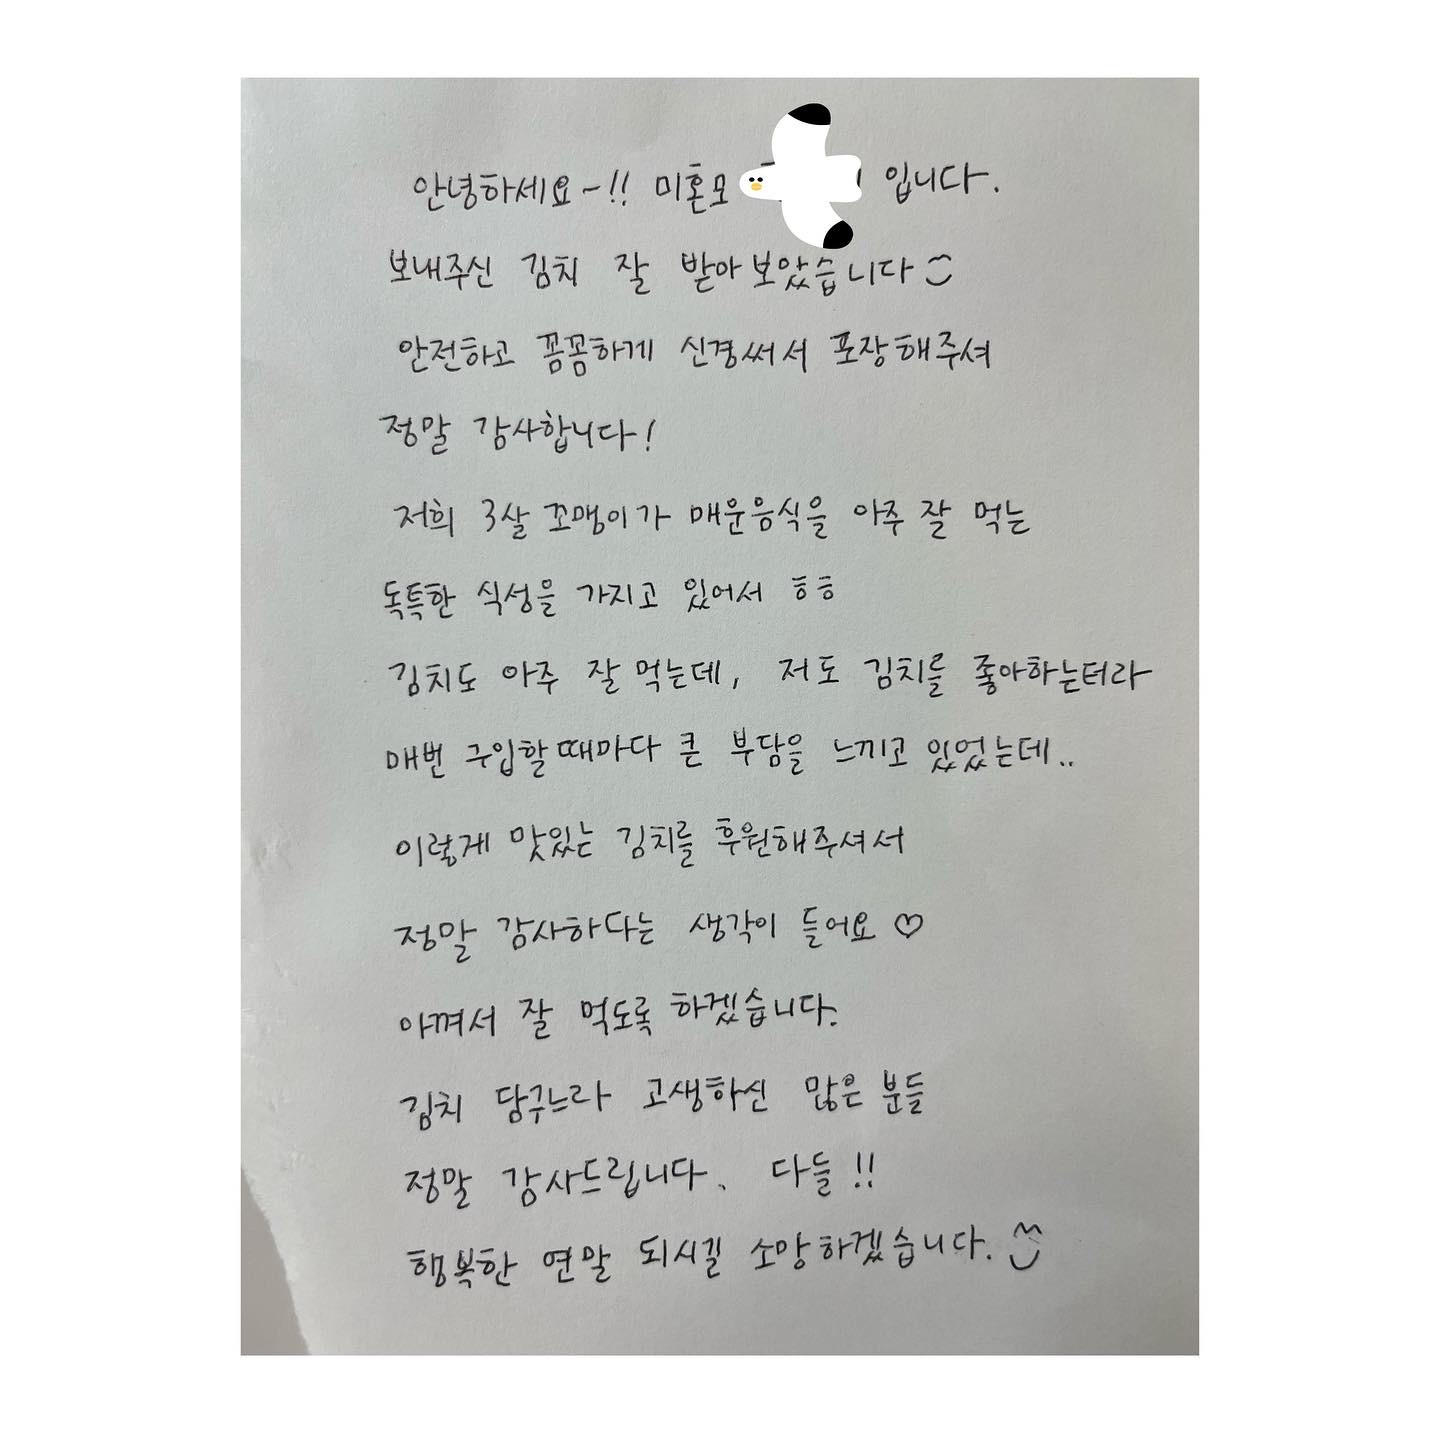 안녕하세요~!! 미혼모 입니다.
보내주신 김치 잘 받아보았습니다
안전하고 꼼꼼하게 신경써서 포장해주셔
정말 감사합니다!
저희 3살 꼬맹이가 매운음식을 아주 잘 먹는
독특한 식성을 가지고 있어서 ㅎㅎ
김치도 아주 잘 먹는데, 저도 김치를 좋아하는터라
매번 구입할때마다 큰 부담을 느끼고 있었는데..
이렇게 맛있는 김치를 후원해주셔서
정말 감사하다는 생각이 들어요♡
아껴서 잘 먹도록 하겠습니다.
김치 담구느라 고생하신 많은 분들
정말 감사드립니다. 다들!!
행복한 연말 되시길 소망하겠습니다.